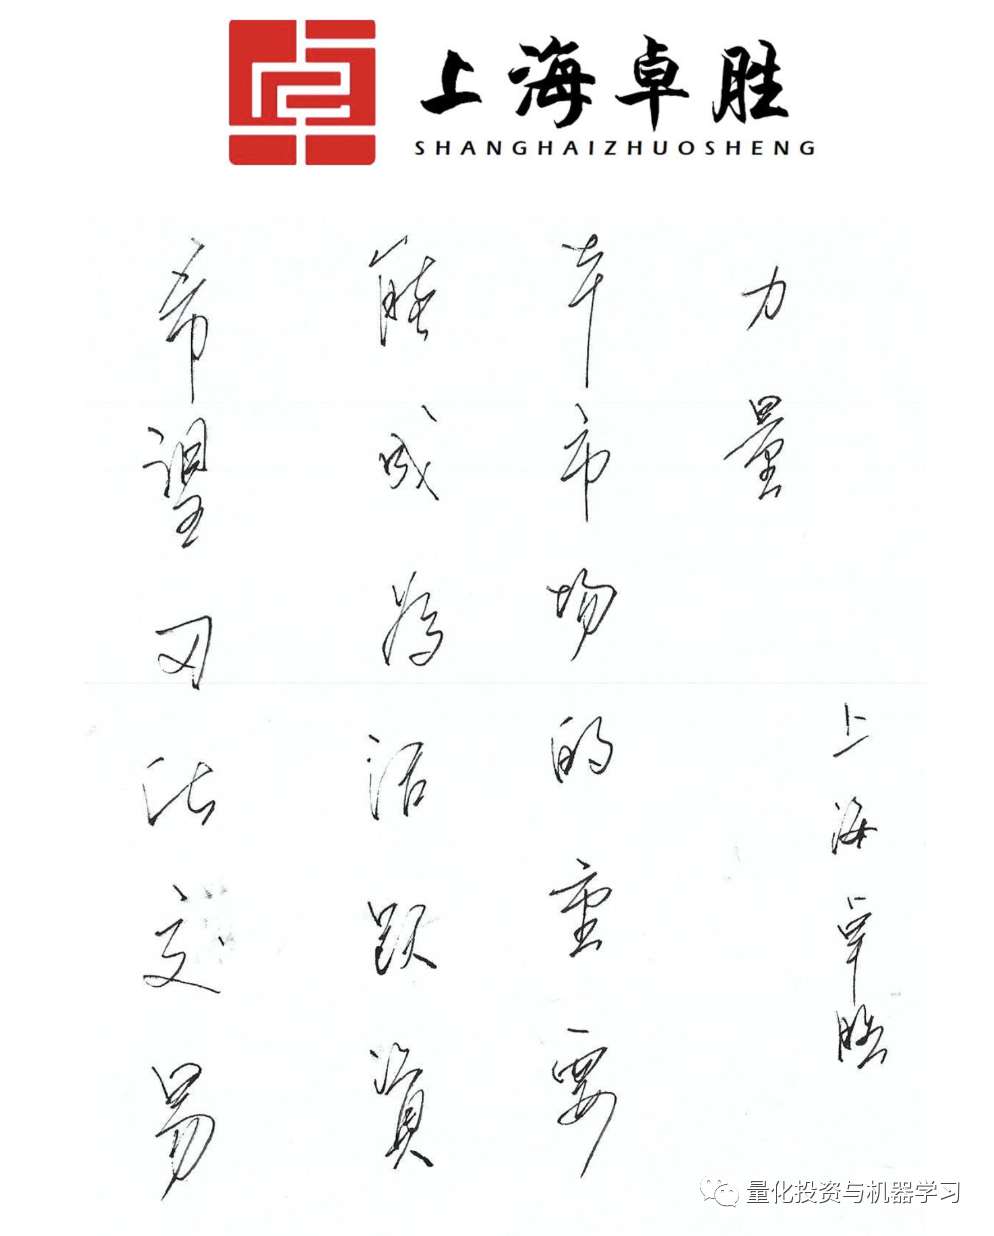 上海卓胜
SHANGHAIZHUOSHENG
希望法交易
能成為活跃資
本市场的重要
力量
上海卓胜
量化投资与机器学习